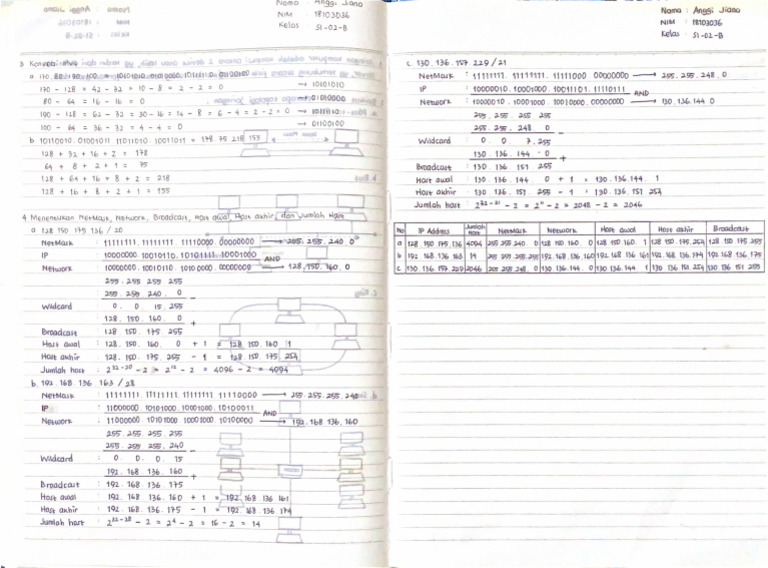 Nama : Anggi Jiana
NIM : 18103036
Kelas : S1-02-B
3 Konversi
a 170 . 80 . 190 . 100 = 10101010 . 01010000 . 10111110 . 01100100
170 - 128 = 42 - 32 = 10 - 8 = 2 - 2 = 0 → 10101010
80 - 64 = 16 - 16 = 0 → 01010000
190 - 128 = 62 - 32 = 30 - 16 = 14 - 8 = 6 - 4 = 2 - 2 = 0 → 10111110
100 - 64 = 36 - 32 = 4 - 4 = 0 → 01100100
b 10110010 . 01001011 11011010 10011011 = 178 75 218 155
128 + 32 + 16 + 2 = 178
64 + 8 + 2 + 1 = 75
128 + 64 + 16 + 8 + 2 = 218
128 + 16 + 8 + 2 + 1 = 155
4 Menentukan NetMask, Network, Broadcast, Host awal, Host akhir, dan Jumlah Host
a 128 150 175 136 / 20
NetMask : 11111111 . 11111111 . 11110000 00000000 → 255 . 255 . 240 0
IP : 10000000 10010110 . 10101111 . 10001000
AND
Network : 10000000 . 10010110 . 10100000 . 00000000 → 128 . 150 . 160 . 0
255 . 255 255 255
255 . 255 . 240 . 0 -
Wildcard : 0 . 0 . 15 . 255
128 . 150 . 160 . 0 +
Broadcast : 128 . 150 . 175 . 255
Host awal : 128 . 150 . 160 . 0 + 1 = 128 . 150 . 160 1
Host akhir : 128 . 150 . 175 . 255 - 1 = 128 . 150 . 175 . 254
Jumlah host : 2^32-20 - 2 = 2^12 - 2 = 4096 - 2 = 4094
b. 192 . 168 . 136 163 / 28
NetMask : 11111111 . 11111111 11111111 11110000 → 255 . 255 . 255 . 240
IP : 11000000 10101000 . 10001000 . 10100011
AND
Network : 11000000 10101000 10001000 . 10100000 → 192 . 168 136 . 160
255 . 255 . 255 . 255
255 . 255 . 255 . 240 -
Wildcard : 0 . 0 . 0 . 15
192 . 168 . 136 . 160 +
Broadcast : 192 . 168 . 136 . 175
Host awal : 192 . 168 . 136 . 160 + 1 = 192 . 168 136 161
Host akhir : 192 . 168 . 136 . 175 - 1 = 192 . 168 . 136 . 174
Jumlah host : 2^32-28 - 2 = 2^4 - 2 = 16 - 2 = 14
Nama : Anggi Jiana
NIM : 18103036
Kelas : S1-02-B
c. 130 . 136 . 157 229 / 21
NetMask : 11111111 . 11111111 . 11111000 00000000 → 255 . 255 . 248 . 0
IP : 10000010 . 10001000 . 10011101 . 11100101
AND
Network : 10000010 . 10001000 . 10010000 . 00000000 → 130 . 136 . 144 0
255 . 255 255 255
255 . 255 . 248 0 -
Wildcard : 0 0 7 . 255
130 . 136 . 144 . 0 +
Broadcast : 130 . 136 151 255
Host awal : 130 . 136 . 144 0 + 1 = 130 . 136 . 144 . 1
Host akhir : 130 . 136 . 151 255 - 1 = 130 . 136 . 151 254
Jumlah host : 2^32-21 - 2 = 2^11 - 2 = 2048 - 2 = 2046
No IP Address Jumlah Host NetMask Network Host awal Host akhir Broadcast
a 128 . 150 175 . 136 4094 255 255 240 . 0 128 150 160 0 128 150 160 . 1 128 150 175 254 128 150 175 255
b 192 168 . 136 163 14 255 255 255 240 192 168 . 136 160 192 . 168 136 161 192 . 168 . 136 174 192 168 . 136 175
c 130 . 136 . 157 229 2046 255 255 248 . 0 130 136 . 144 . 0 130 136 144 1 130 136 151 254 130 136 151 255